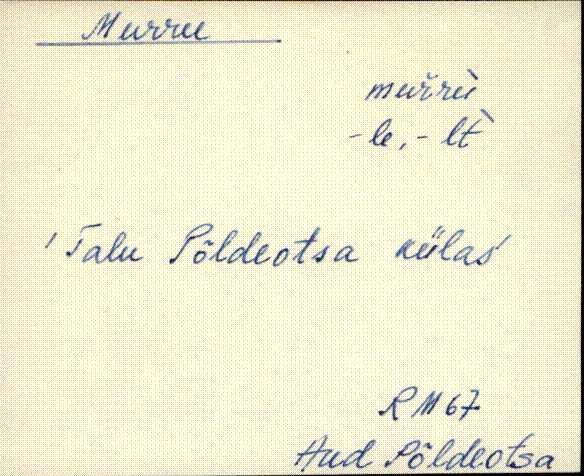 Murru
mur̆rù
-le, -lt̀
'Talu Põldeotsa külas'
R M 67
Aud Põldeotsa